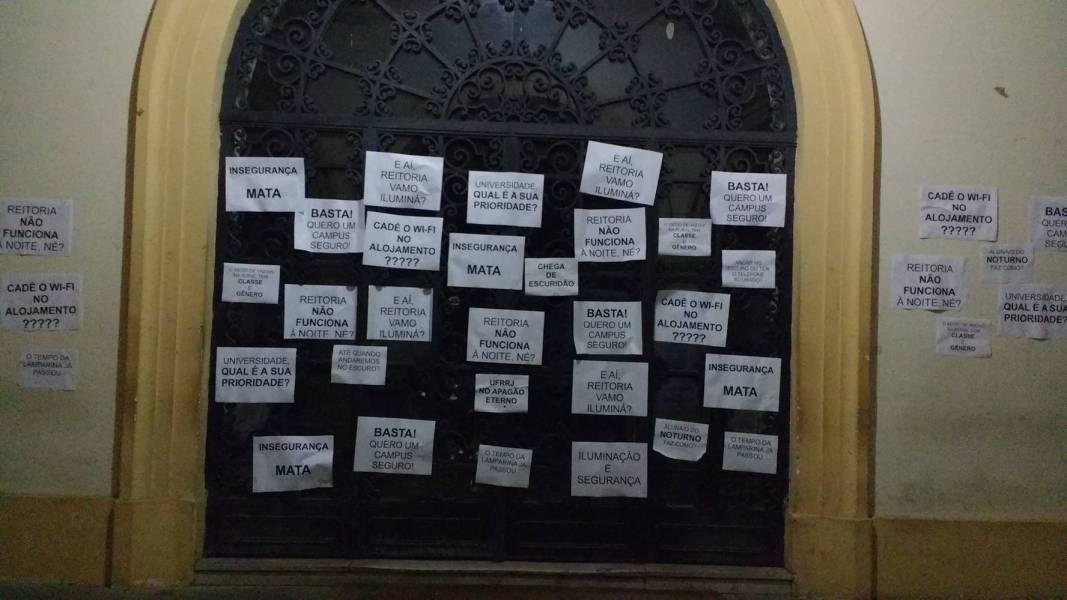 INSEGURANÇA
MATA
E AÍ,
REITORIA
VAMO
ILUMINÁ?
UNIVERSIDADE,
QUAL É A SUA
PRIORIDADE?
E AÍ,
REITORIA
VAMO
ILUMINÁ?
BASTA!
QUERO UM
CAMPUS
SEGURO!
BASTA!
QUERO UM
CAMPUS
SEGURO!
CADÊ O WI-FI
NO
ALOJAMENTO
?????
INSEGURANÇA
MATA
REITORIA
NÃO
FUNCIONA
À NOITE, NÉ?
CLASSE
E
GÊNERO
CHEGA
DE
ESCURIDÃO
CLASSE
E
GÊNERO
REITORIA
NÃO
FUNCIONA
À NOITE, NÉ?
E AÍ,
REITORIA
VAMO
ILUMINÁ?
REITORIA
NÃO
FUNCIONA
À NOITE, NÉ?
BASTA!
QUERO UM
CAMPUS
SEGURO!
CADÊ O WI-FI
NO
ALOJAMENTO
?????
UNIVERSIDADE,
QUAL É A SUA
PRIORIDADE?
ATÉ QUANDO
ANDAREMOS
NO ESCURO?
UFRRJ
NO APAGÃO
ETERNO
E AÍ,
REITORIA
VAMO
ILUMINÁ?
INSEGURANÇA
MATA
INSEGURANÇA
MATA
BASTA!
QUERO UM
CAMPUS
SEGURO!
O TEMPO DA
LAMPARINA JÁ
PASSOU
ILUMINAÇÃO
E
SEGURANÇA
ALUNA/O DO
NOTURNO
FAZ COMO?
O TEMPO DA
LAMPARINA JÁ
PASSOU
REITORIA
NÃO
FUNCIONA
À NOITE, NÉ?
CADÊ O WI-FI
NO
ALOJAMENTO
?????
O TEMPO DA
LAMPARINA JÁ
PASSOU
CADÊ O WI-FI
NO
ALOJAMENTO
?????
REITORIA
NÃO
FUNCIONA
À NOITE, NÉ?
ALUNA/O DO
NOTURNO
FAZ COMO?
UNIVERSIDADE,
QUAL É A SUA
PRIORIDADE?
CLASSE
E
GÊNERO